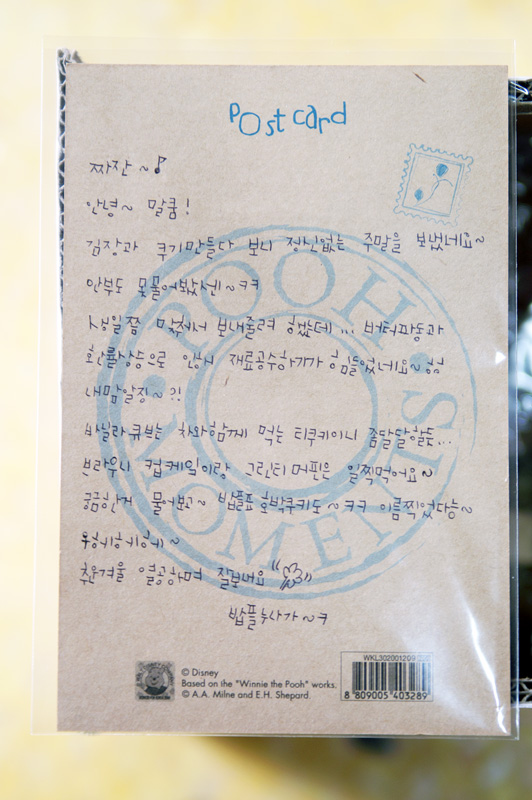 Postcard
짜잔~♪
안녕~ 말쿰!
김장과 쿠기만들다 보니 정신없는 주말을 보냈네요~
안부도 못물어봤샌~ㅋㅋ
생일쯤 맞춰서 보내줄려 했었데... 버터파동과
환률상승으로 인상되 재료공수하기가 힘들었네요~
내맘알징~?!
바닐라큐브는 차와함께 먹는 티쿠키이니 좀달달할드...
브라우니 컵케익이랑 그린티머핀은 일찍먹어요~
킁킁한게 물어보고~ 밥플표 호박쿠키도~ㅋㅋ 이름찍었다능~
우헤헤헤헤~
추운겨울 열공하며 잘보내요
밥플누사가~ㅋ
POOH'S MOMENTS
© Disney
Based on the "Winnie the Pooh" works.
© A.A. Milne and E.H. Shepard.
8 809005 403289